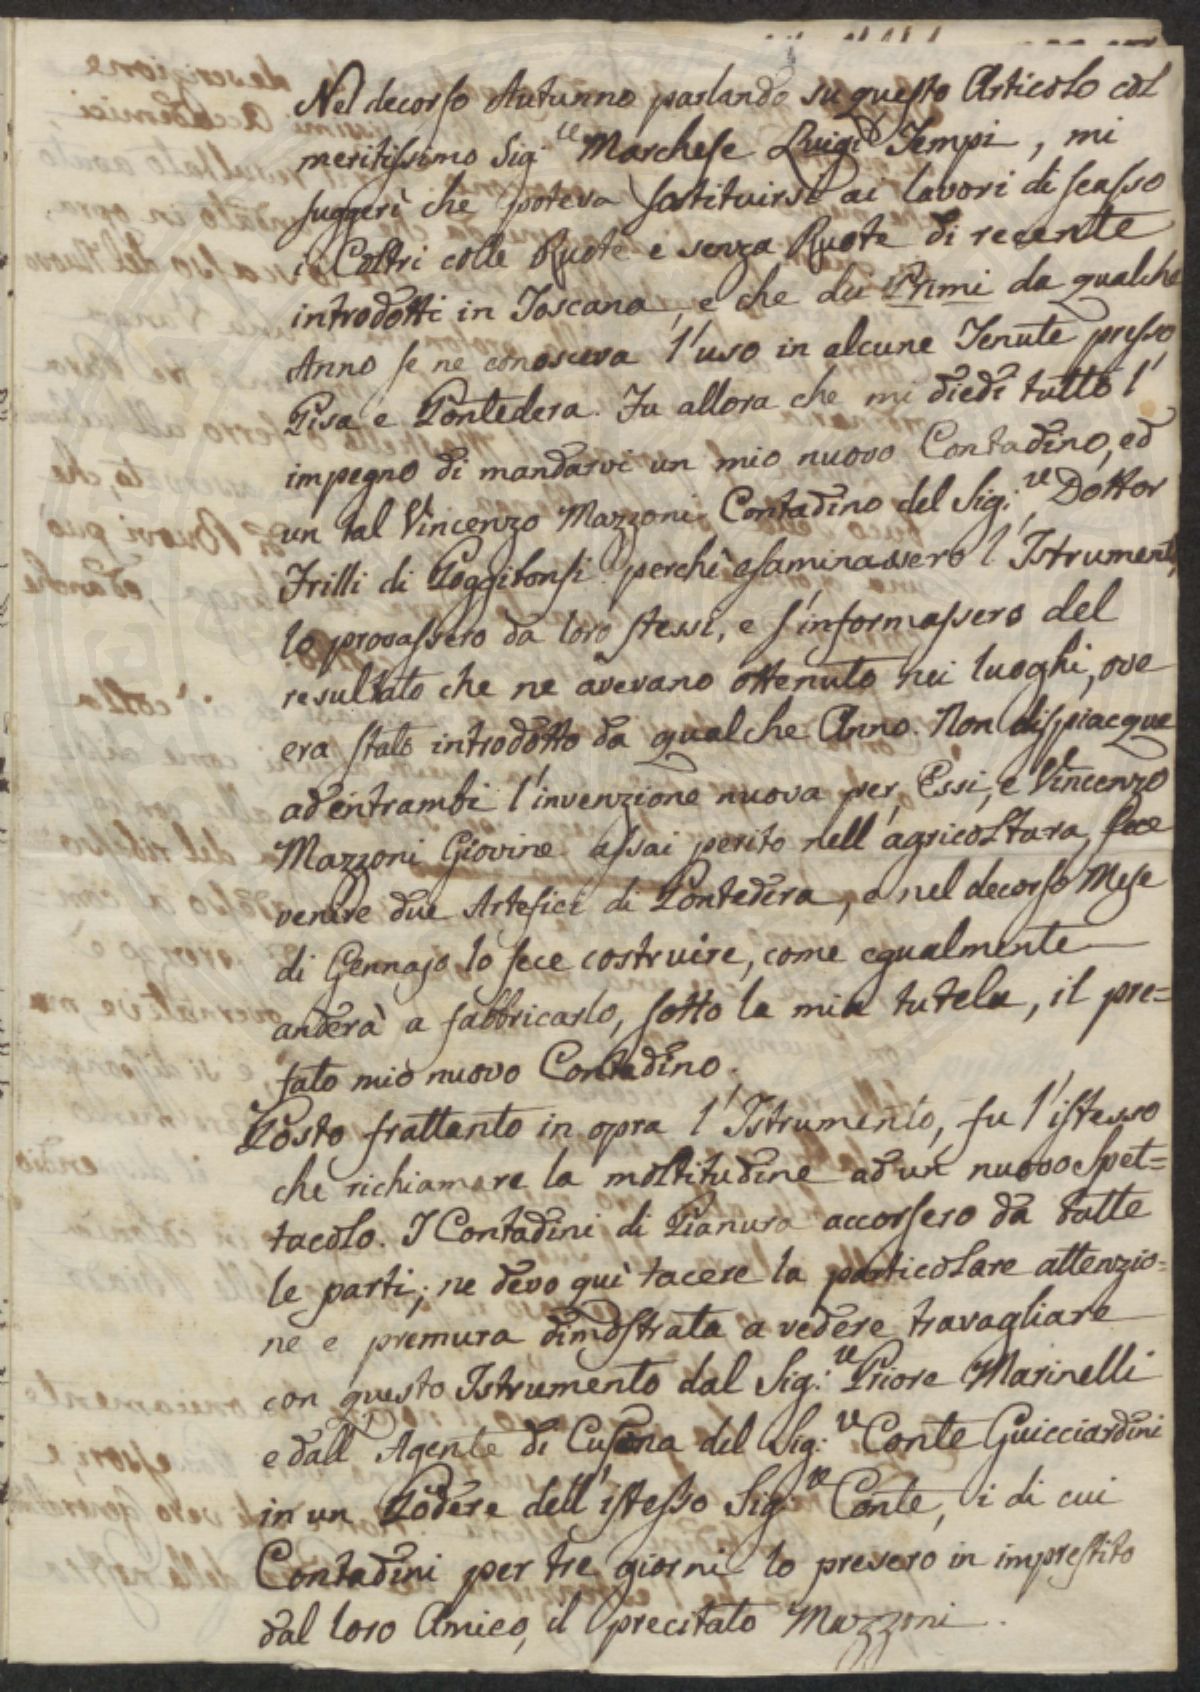 Nel decorso Autunno parlando su questo Articolo col
meritissimo Sig.re Marchese Luigi Tempi, mi
suggerì che poteva sostituirsi ai lavori di scasso
i Coltri colle Ruote e senza Ruote di recente
introdotti in Toscana, e che dei Primi da qualche
Anno se ne conosceva l'uso in alcune Tenute presso
Pisa e Pontedera. Fu allora che mi diedi tutto l'
impegno di mandarvi un mio nuovo Contadino, ed
un tal Vincenzo Mazzoni Contadino del Sig.re Dottor
Frilli di Poggibonsi perchè esaminassero l'Istrumento
lo provassero da loro stessi, e s'informassero del
resultato che ne avevano ottenuto nei luoghi, ove
era stato introdotto da qualche Anno. Non dispiacque
ad entrambi l'invenzione nuova per Essi, e Vincenzo
Mazzoni Giovine assai perito nell'agricoltura, fece
venire due Artefici di Pontedera, e nel decorso Mese
di Gennajo lo fece costruire, come egualmente
anderà a fabbricarlo, sotto la mia tutela, il pre=
fato mio nuovo Contadino.
Posto frattanto in opra l'Istrumento, fu l'istesso
che richiamare la moltitudine ad un nuovo Spet=
tacolo. I Contadini di Pianura accorsero da tutte
le parti; ne devo quì tacere la particolare attenzio=
ne e premura dimostrata a vedere travagliare
con questo Istrumento dal Sig.re Priore Marinelli
e dall'Agente di Cusona del Sig.re Conte Guicciardini
in un Podere dell'istesso Sig.re Conte, i di cui
Contadini per tre giorni lo presero in imprestito
dal loro Amico, il precitato Mazzoni.